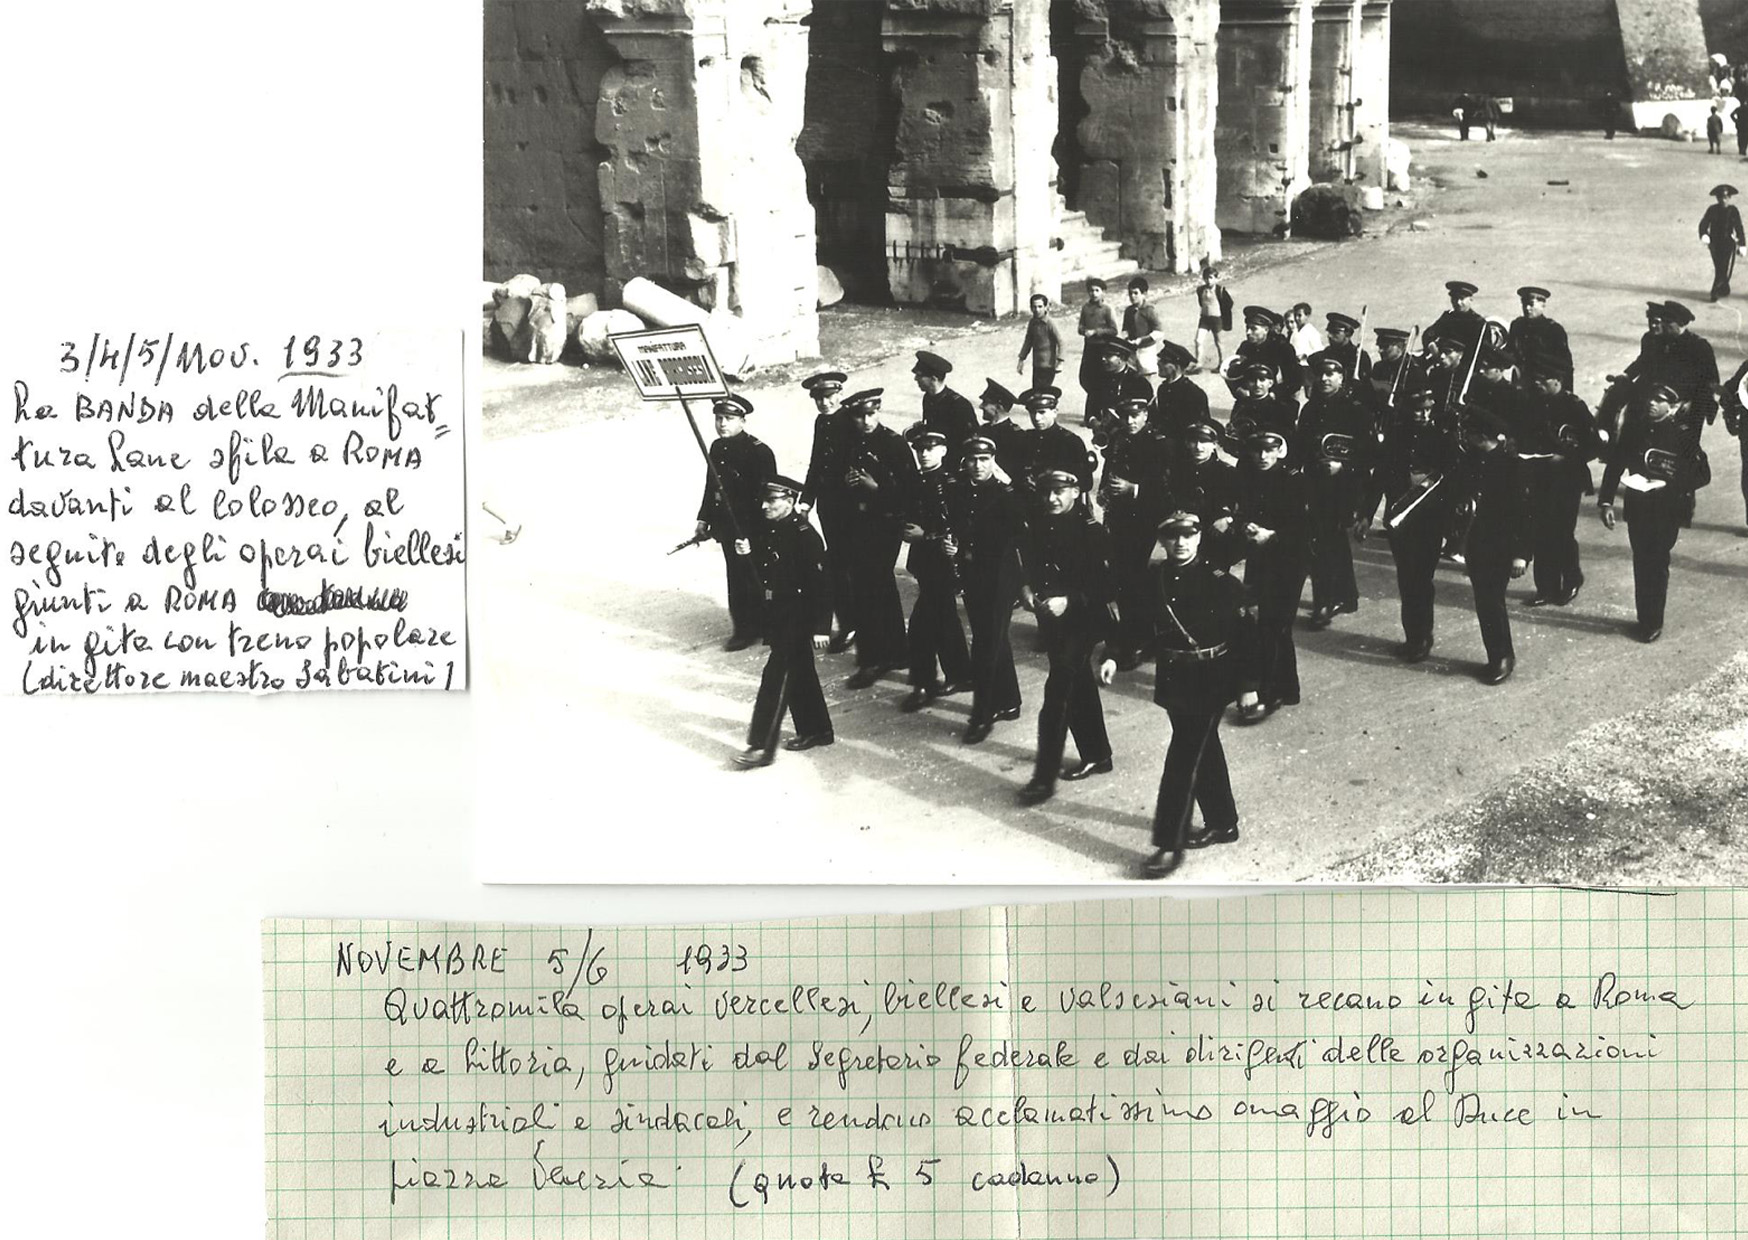 3/4/5/Nov. 1933
La BANDA della Manifat=
tura Lane sfila a ROMA
davanti al Colosseo, al
seguito degli operai biellesi
giunti a ROMA
in gita con treno popolare
(direttore maestro Sabatini)
MANIFATTURA
LANE BORGOSESIA
NOVEMBRE 5/6 1933
Quattromila operai vercellesi, biellesi e valsesiani si recano in gita a Roma
e a Littoria, guidati dal Segretario federale e dai dirigenti delle organizzazioni
industriali e sindacali, e rendono acclamatissimo omaggio al Duce in
piazza Venezia. (quota £ 5 cadauno)